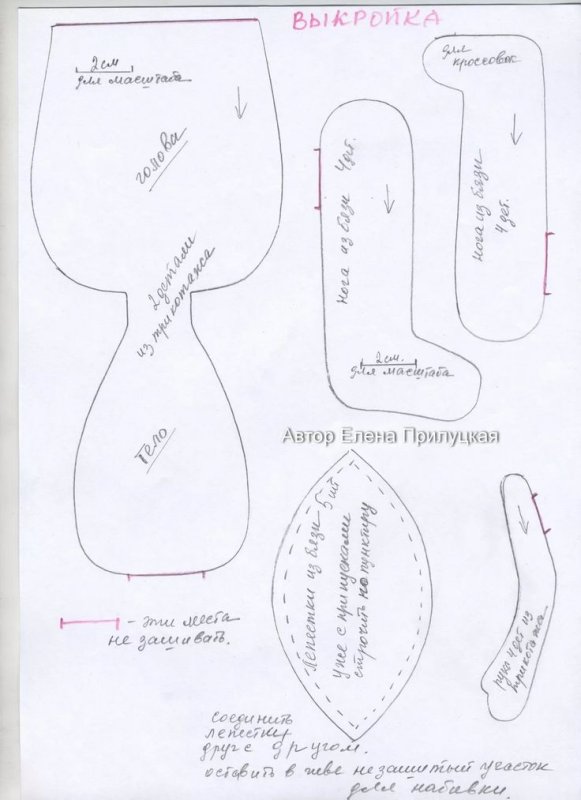 ВЫКРОЙКА
2см
для масштаба
голова
2 детали
из трикотажа
тело
нога из бязи 4 дет.
2см.
для масштаба
для
кроссовок
нога из бязи
4 дет.
Автор Елена Прилуцкая
Лепестки из бязи 5 шт
Уже с припусками
строчить по пунктиру
рука 4 дет из
трикотажа
- эти места
не зашивать.
соединить
лепестки
друг с другом.
оставить в шве незашитый участок
для набивки.